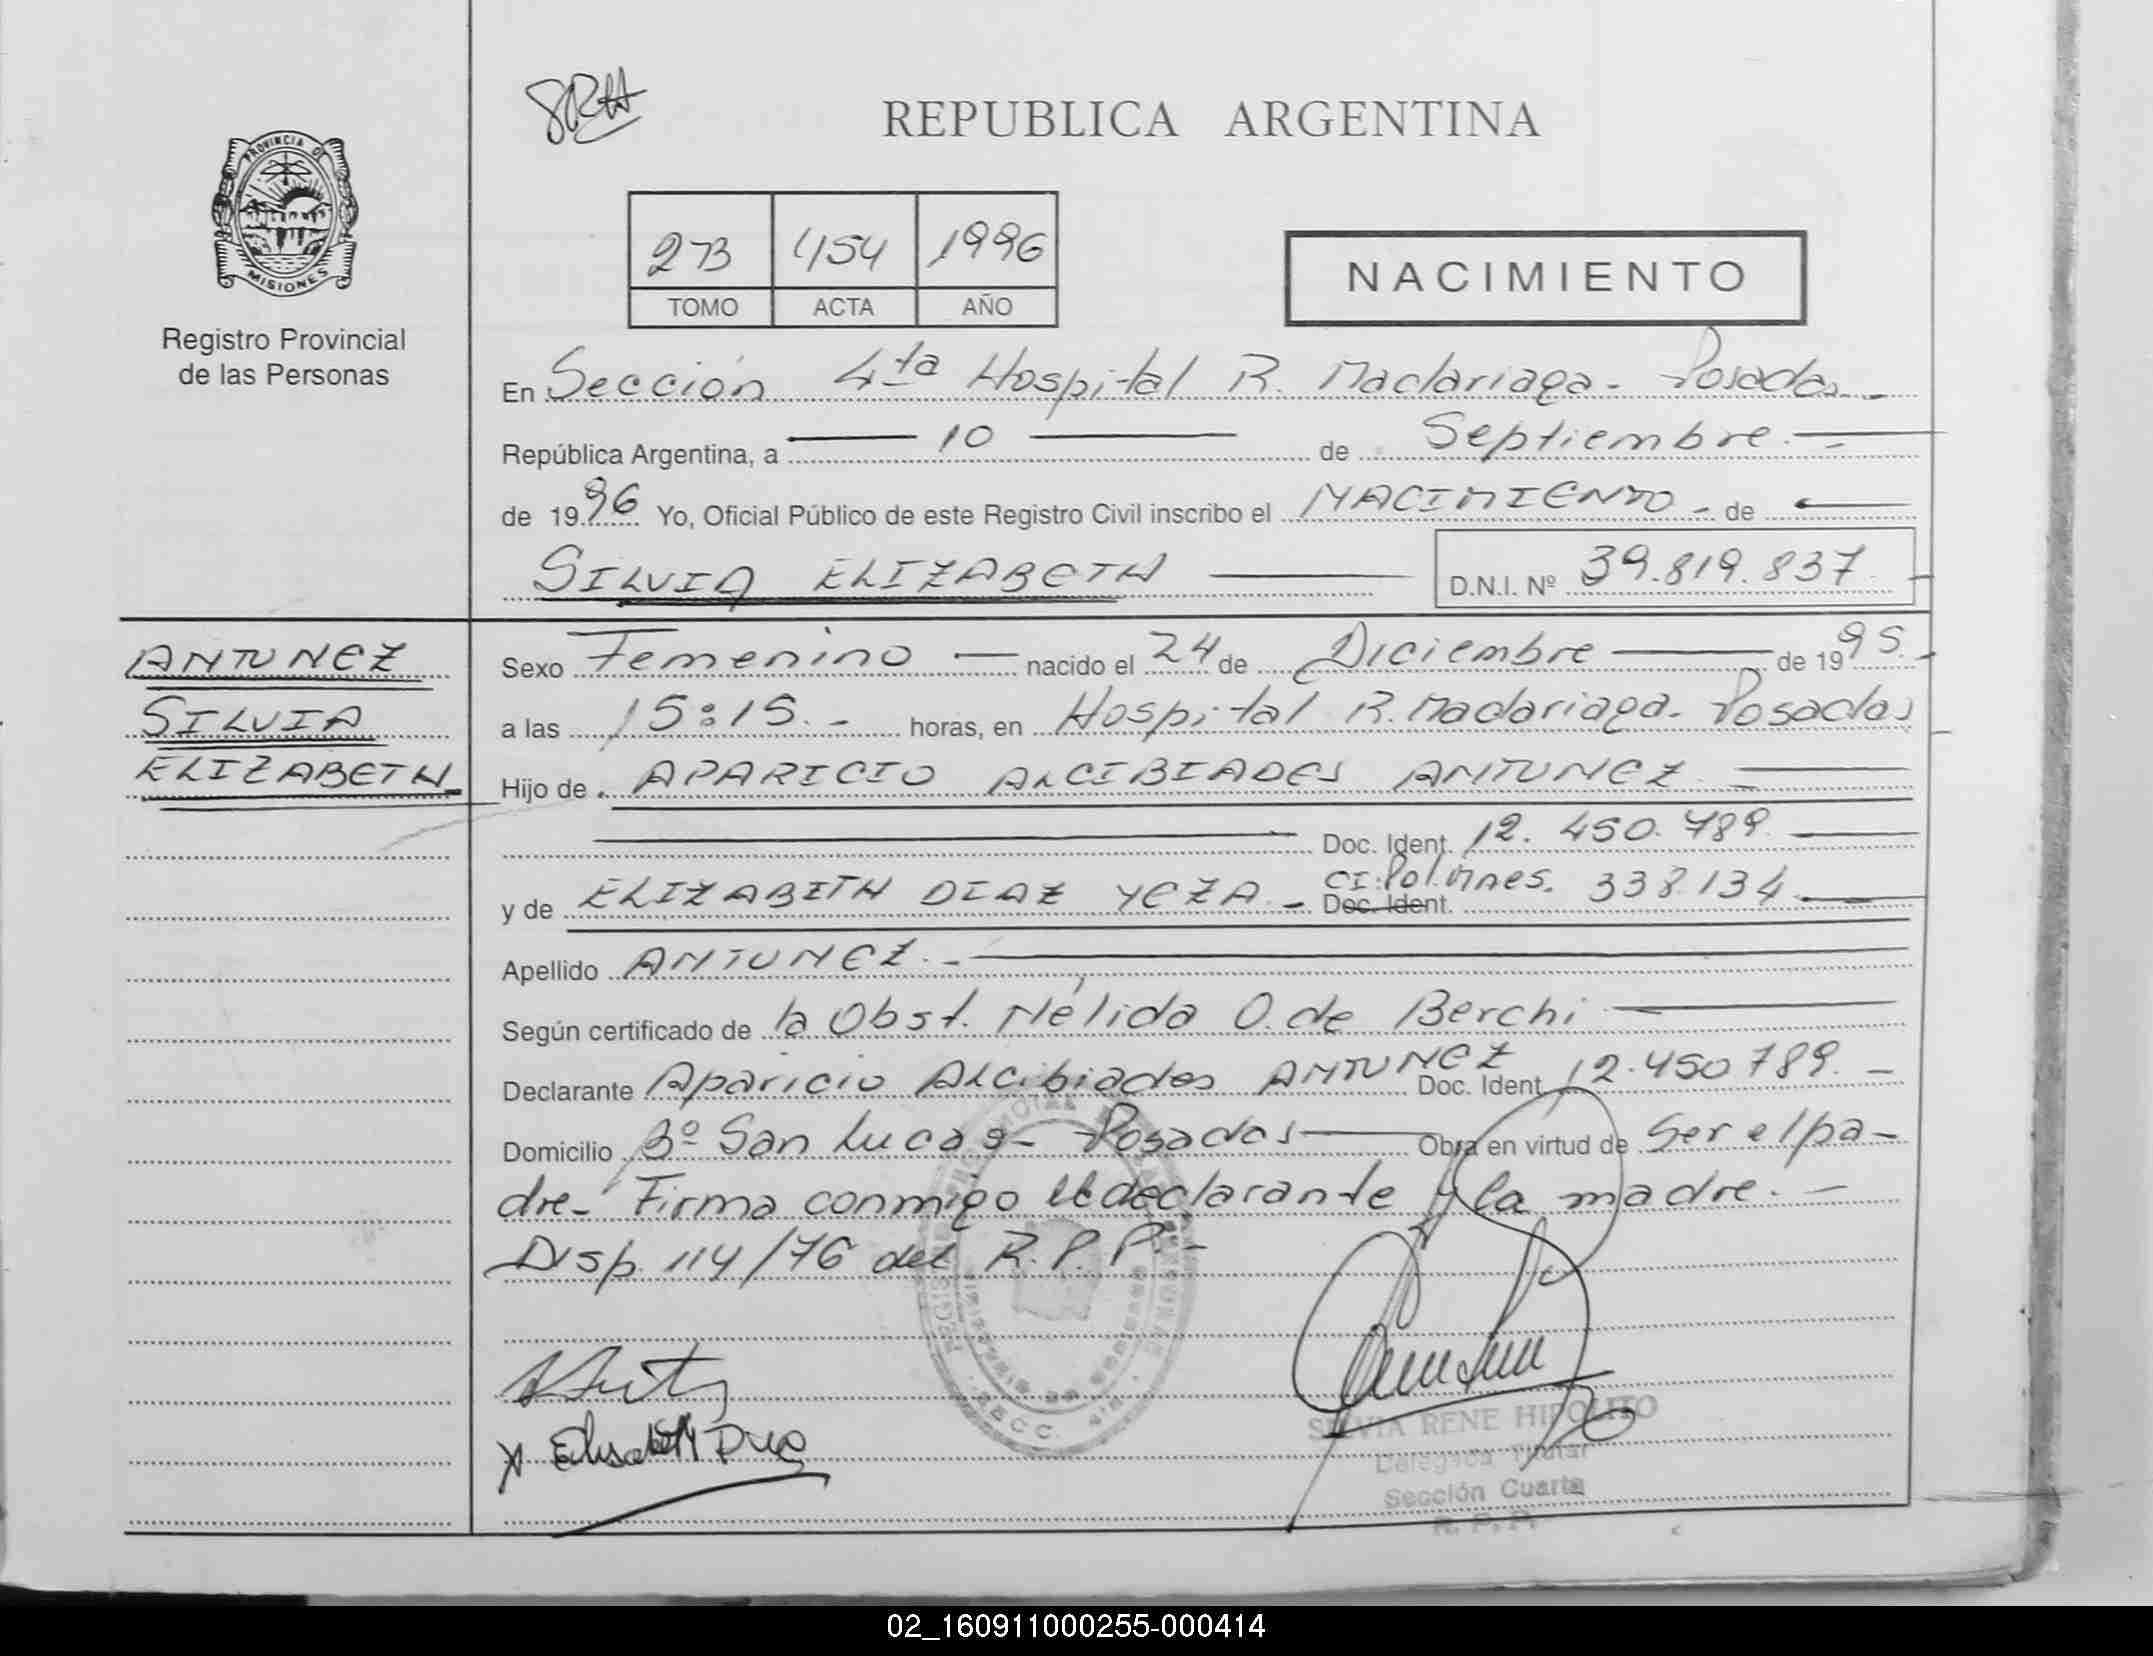 REPUBLICA ARGENTINA
PROVINCIA D
MISIONES
Registro Provincial
de las Personas
2B 454 1996
TOMO ACTA AÑO
NACIMIENTO
En Sección 4ta Hospital R. Madariaga - Posadas -
República Argentina, a 10 de Septiembre -
de 1996 Yo, Oficial Público de este Registro Civil inscribo el NACIMIENTO - de
SILVIA ELIZABETH D.N.I. Nº 39.819.837
ANTUNEZ
SILVIA
ELIZABETH
Sexo Femenino nacido el 24 de Diciembre de 1995.
a las 15:15. - horas, en Hospital R. Madariaga - Posadas
Hijo de APARICIO ALCIBIADES ANTUNEZ
Doc. Ident. 12.450.789
y de ELIZABETH DIAZ YEZA - CI: Pol. Mnes. 338.134
Doc. Ident.
Apellido ANTUNEZ. -
Según certificado de la Obst. Nélida O. de Berchi
Declarante Aparicio Alcibiades ANTUNEZ Doc. Ident. 12.450789. -
Domicilio Bº San Lucas - Posadas Obra en virtud de Ser el pa-
dre - Firma conmigo el declarante y la madre. -
Disp. 114/76 del R.P.P. -
SILVIA RENE HIPOLITO
Delegada Titular
Sección Cuarta
R. P. P.
02_160911000255-000414